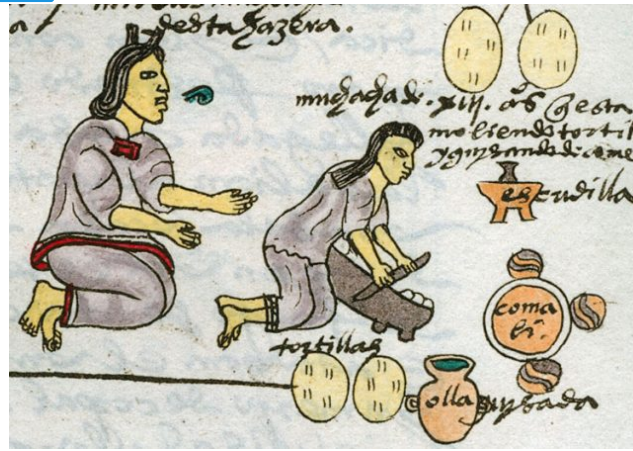 desta hazera.
muchacha de .xiij. aºs questa
moliendo tortil
y guisando de come
escudilla
coma
li.
tortillas
olla guisada